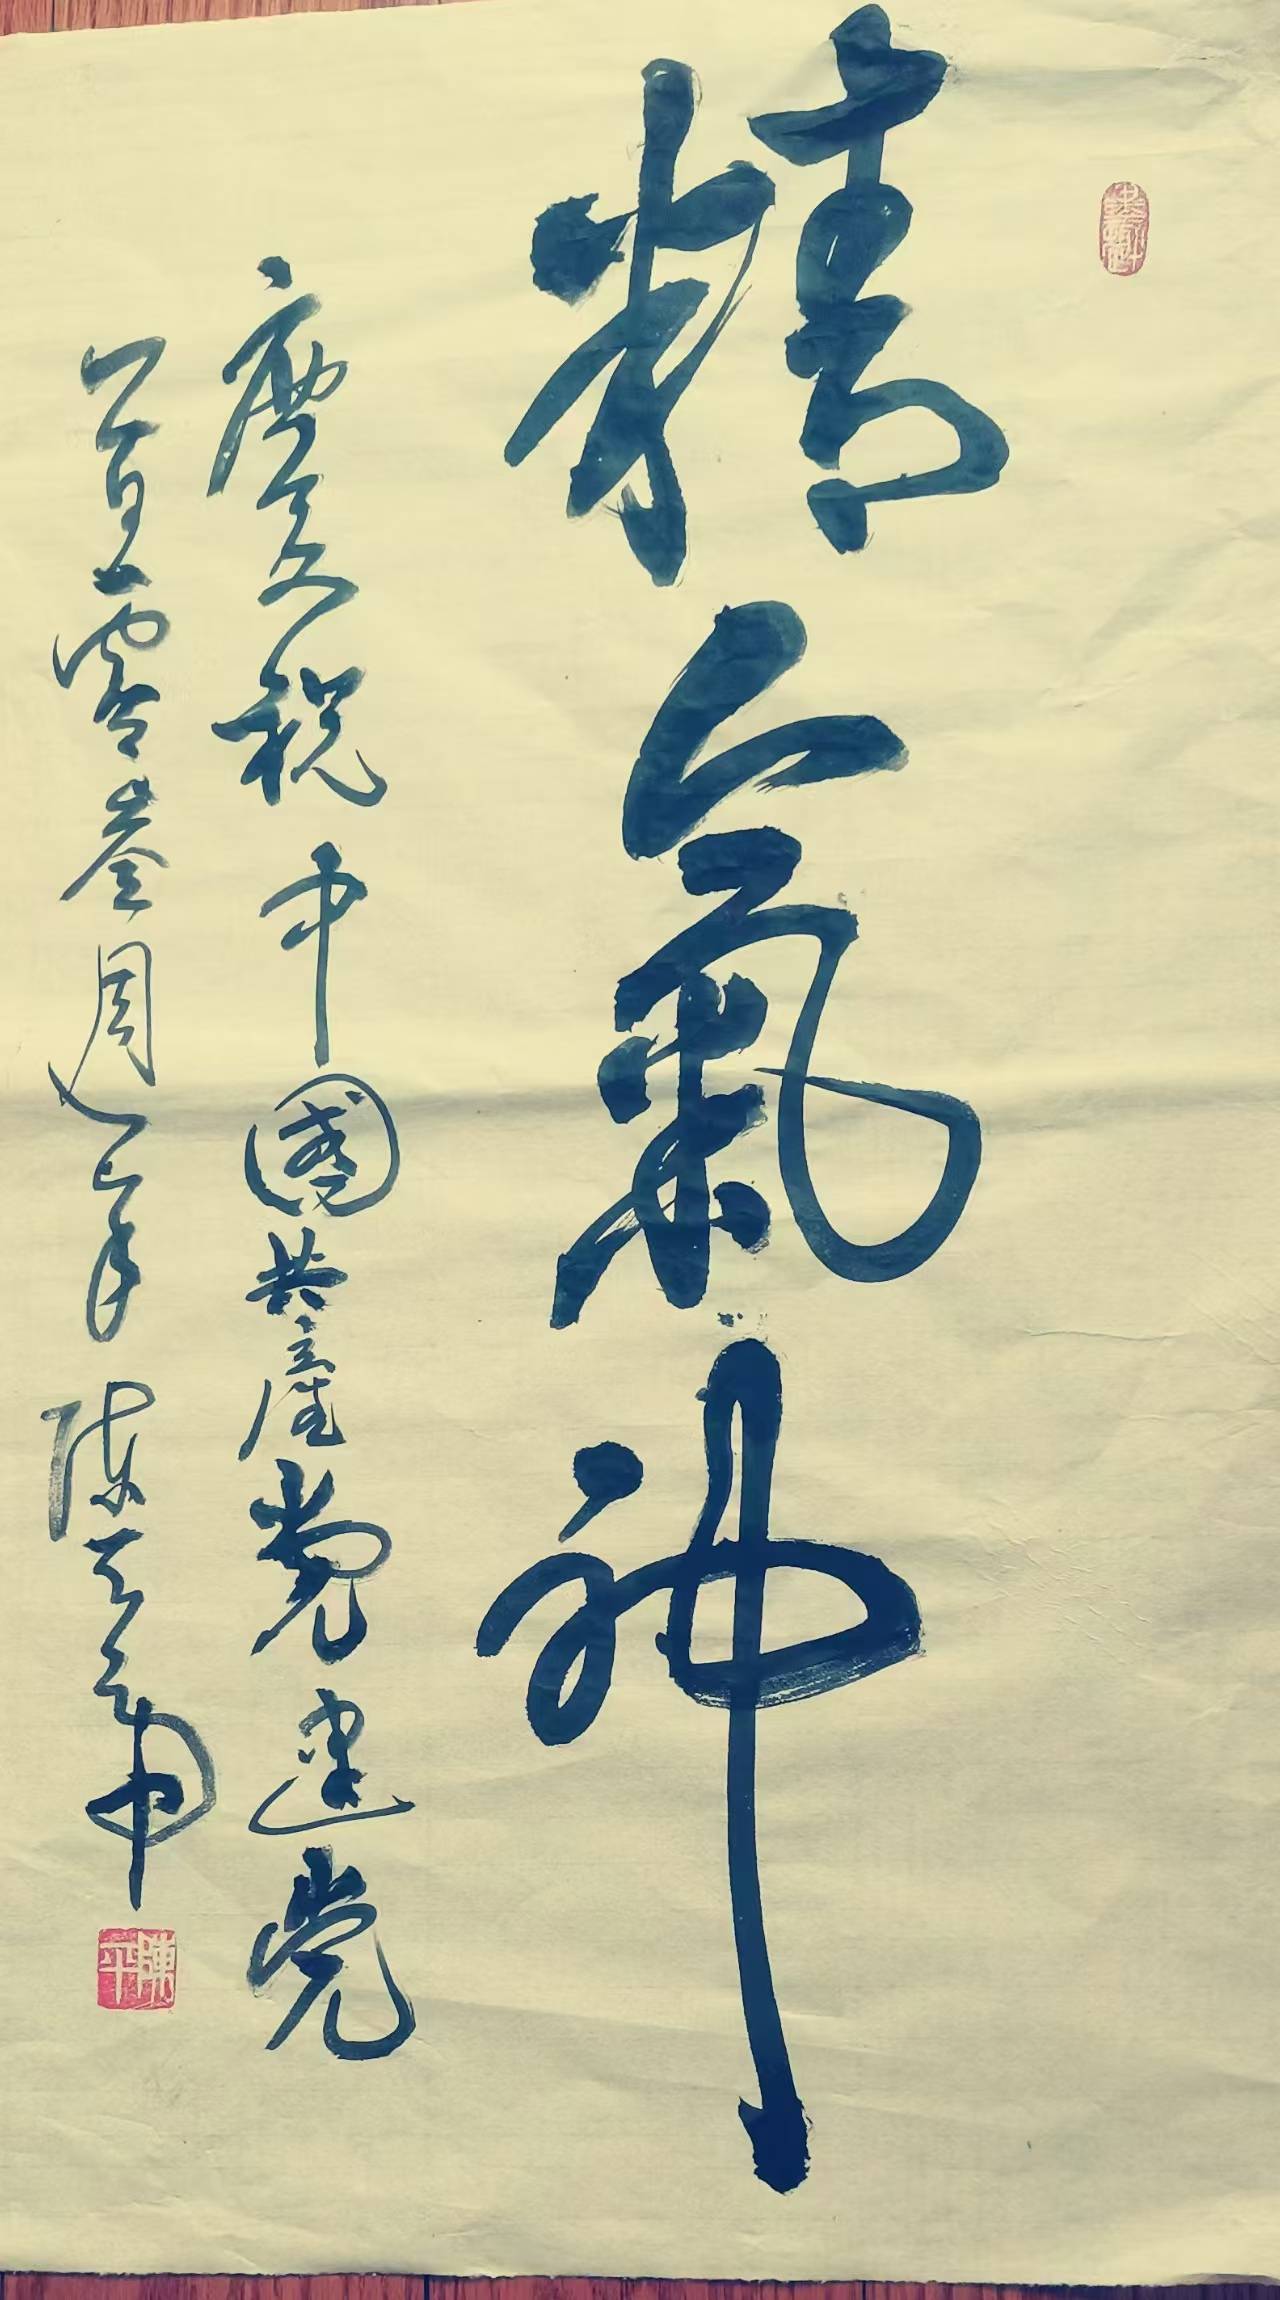 精氣神
慶祝中國共產黨建黨
一百零叁週年 陳平
陳平